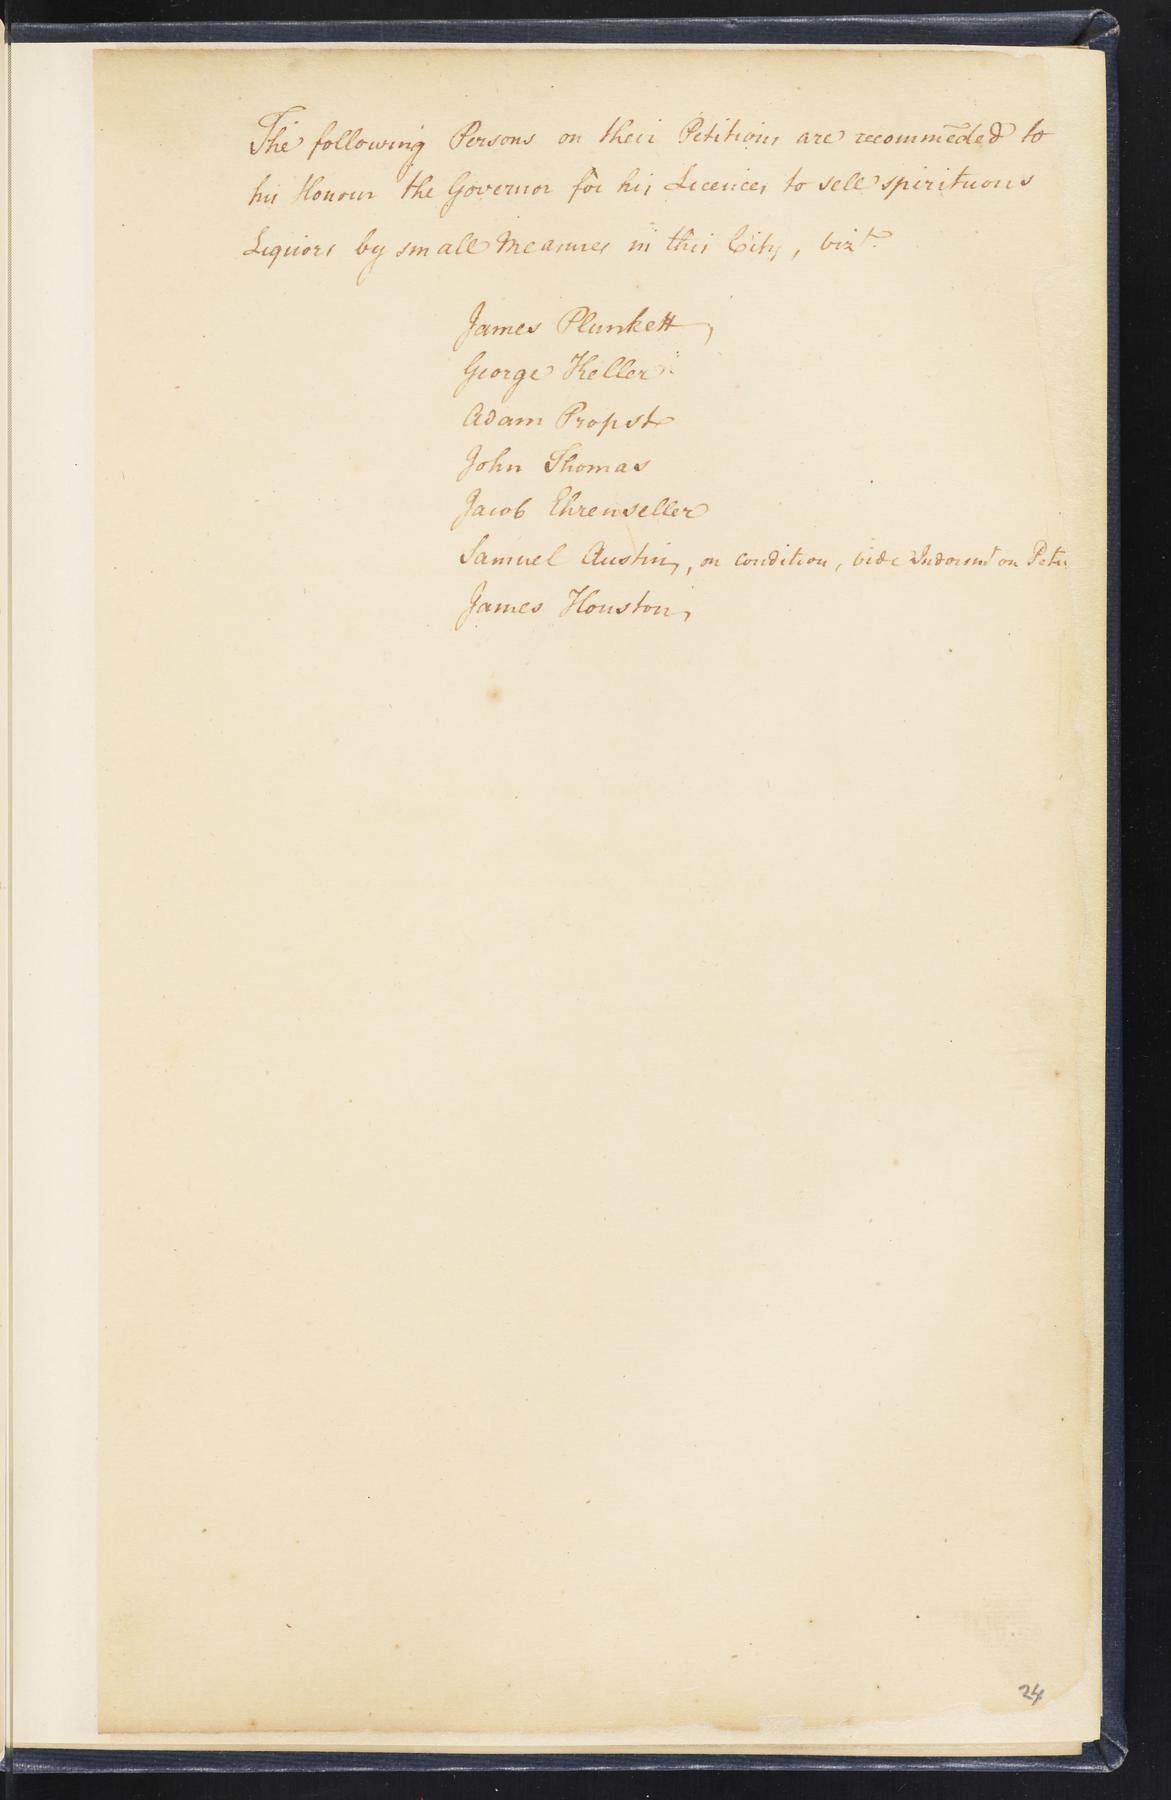 The following Persons on their Petitions are recommēded to
his Honour the Governor for his Licences to sell spirituous
Liquors by small Measures in this City, vizt.
James Plunkett,
George Keller
Adam Propst
John Thomas
Jacob Ehrenzeller
Samuel Austin, on condition, vide Indorsmt on Petn
James Houston,
24